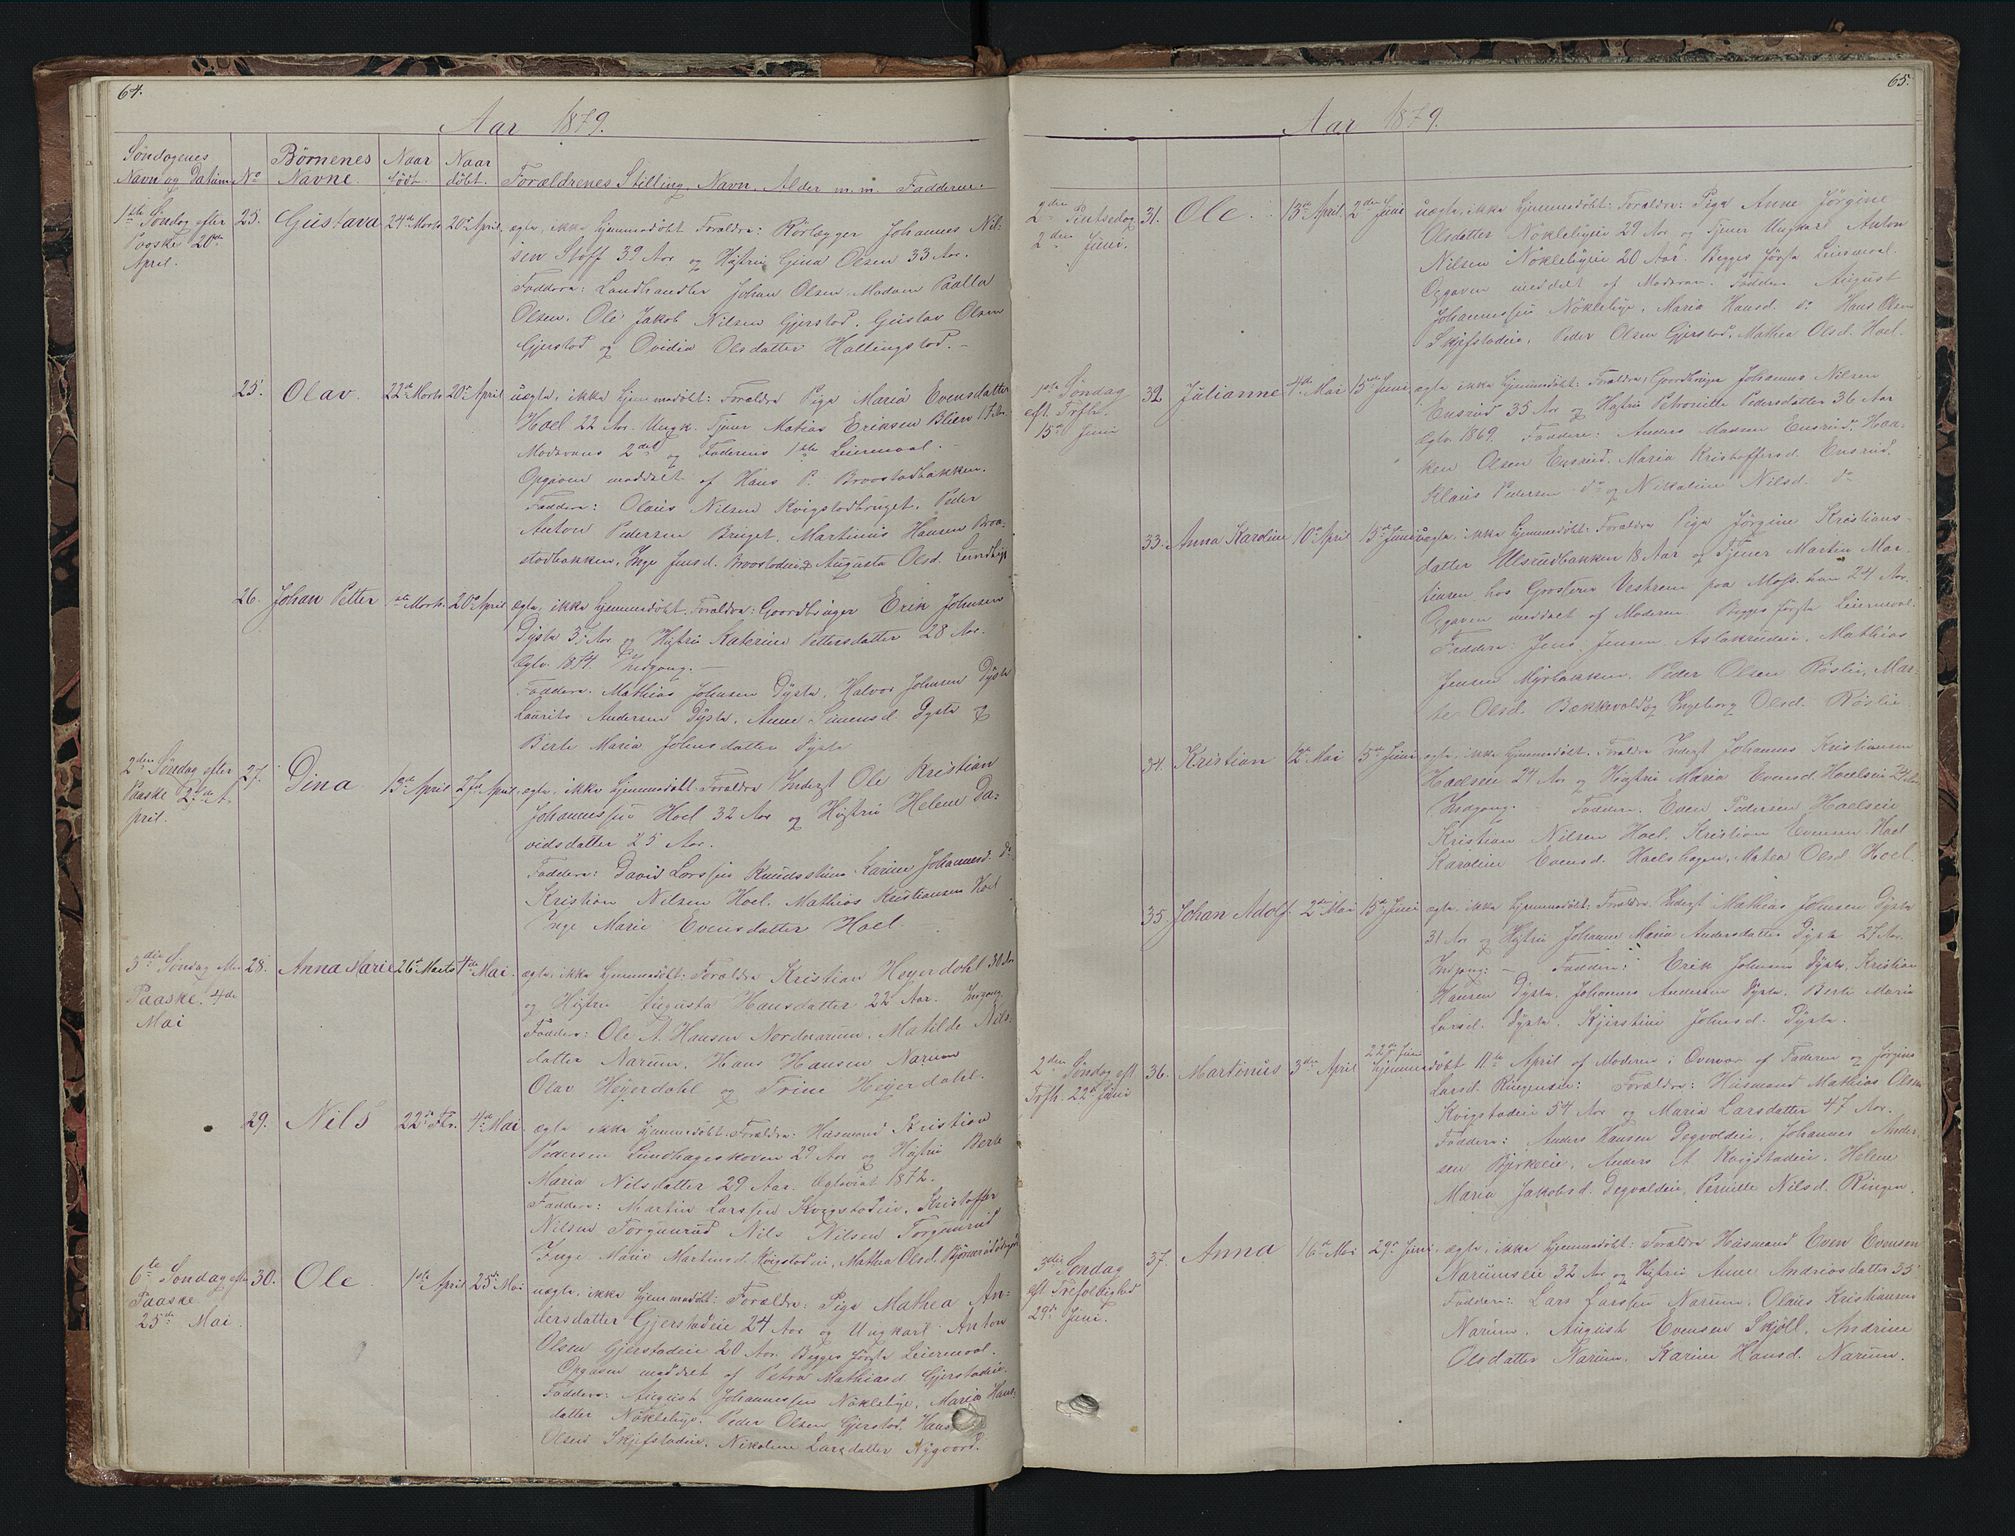 64.
Aar 1879.
Søndagenes Navn og Datum No Børnenes Navne. Naar født. Naar døbt. Forældrenes Stilling, Navn, Alder m.m. Faddere.
1ste Søndag efter Paaske 20de April.
25. Gustava 24de Marts 20de April ægte, ikke hjemmedøbt. Forældre: Rørlægger Johannes Nil-
sen Stoff 39 Aar og Hustru Gina Olsen 33 Aar.
Faddere: Landhandler Johan Olsen. Madam Paalla
Olsen. Ole Jakob Nilsen Gjerstad, Gustav Olsen
Gjerstad og Ovidia Olsdatter Hallingstad.
25. Olav. 22de Marts 20de April uægte, ikke hjemmedøbt: Forældre Pige Maria Evensdatter
Hoel 22 Aar. Ungk. Tjener Matias Eriksen Blien
Moderens 2det og Faderens 1ste Leiermaal.
Opgaven meddelt af Hans P. Broostadbakken.
Faddere: Olaus Nilsen Kvigstadbruget, Peder
Anton Pedersen Bruget. Martinus Hansen Broo-
stadbakken, Inge Jensd. Broostadeie & Augusta Olsd.
26. Johan Petter Marts. 20de April ægte, ikke hjemmedøbt. Forældre: Gaardbruger Erik Johnsen
Dysta Aar og Hustru Katerine Pettersdatter 28 Aar.
Ægtv. 1874. Indgang.
Faddere. Mathias Johnsen Dysta, Halvor Johnsen Dysta
Laurits Andersen Dysta, Anne Simensd. Dysta &
Berte Maria Johnsdatter Dysta
2den Søndag efter Paaske 27de April.
27. Dina 13de April 27de April, ægte, ikke hjemmedøbt. Forældre Inderst Ole Kristian
Johannessen Hoel 32 Aar og Hustru Helene Da-
vidsdatter 25 Aar.
Faddere: David Larssen Karine Johannesd. do
Kristian Nilsen Hoel. Mathias Kristiansen Hoel
Inge Marie Evensdatter Hoel
3die Søndag efter Paaske. 4de Mai
28. Anna Marie 26de Marts 4de Mai. ægte, ikke hjemmedøbt: Forældre Kristian Heyerdahl Aar
og Hustru Augusta Hansdatter 22 Aar. Indgang
Faddere: Ole A. Hansen Nordnarum, Matilde Nils-
datter Narum. Hans Hansen Narum
Olav Heyerdahl og Trine Heyerdahl.
29. Nils 22de Fbr. 4de Mai, ægte ikke hjemmedøbt: Forældre: Husmand Kristian
Pedersen Lundhageskoven 29 Aar og Hustru Berte
Maria Nilsdatter 29 Aar. Ægteviet 1872.
Faddere: Martin Larssen Kvigstadeie, Kristoffer
Nilsen Torgunrud Nils Nilsen Torgunrud
Inge Marie Martinsd. Kvigstadeie, Mathea Olsd.
6te Søndag efter Paaske 25de Mai.
30. Ole 1ste April 25de Mai uægte, ikke hjemmedøbt: Forældre: Pige Mathea An-
dersdatter Gjerstadeie 24 Aar og Ungkarl Anton
Olsen Gjerstadeie 20 Aar. Begges første Leiermaal.
Opgaven meddelt af Petra Mathiasd. Gjerstadeie.
Faddere: August Johannessen Nøklebye, Maria Hans-
datter Nøklebye. Peder Olsen Gjerstad, Hans
Olsen Skjefstadeie, Nikoline Larsdatter Nygaard.
65.
Aar 1879.
2den Pintsedag 2den Juni.
31. Ole 13de April 2den Juni uægte, ikke hjemmedøbt: Forældre: Pige Anne Jørgine
Olsdatter Nøklebyeie 29 Aar og Tjener Ungkarl Anton
Nilsen Nøklebyeie 20 Aar. Begges første Leiermaal.
Opgaven meddelt af Moderen. Faddere August
Johannessen Nøklebye, Maria Hansd. do Hans Olsen
Skjefstadeie, Peder Olsen Gjerstad, Mathea Olsd. Hoel.
1ste Søndag eft. Trfh. 15de Juni
32. Julianne 4de Mai 15de Juni ægte ikke hjemmedøbt: Forældre; Gaardbruger Johannes Nilsen
Ensrud 35 Aar og Hustru Petronille Pedersdatter 36 Aar
Ægtv. 1869. Faddere: Anders Madsen Ensrud. Haa-
ken Olsen Ensrud. Maria Kristoffersd. Ensrud.
Klaus Pedersen do og Nikoline Nilsd. do
33. Anna Karoline 10de April 15de Juni uægte, ikke hjemmedøbt: Forældre Pige Jørgine Kristians-
datter Ulsrudbakken 18 Aar og Tjener Martin Mar-
tinsen hos Grosterer Vestrem paa Moss. han 24 Aar.
Opgaven meddelt af Moderen Begges første Leiermaal.
Faddere: Jens Jensen Aslakrudeie, Mathias
Jensen Myrbakken. Peder Olsen Røslie, Mar-
te Olsd. Bækkevold og Ingeborg Olsd. Røslie.
34. Kristian 12de Mai 15de Juni ægte, ikke hjemmedøbt. Forældre Inderst Johannes Kristiansen
Hoelseie 24 Aar og Hustru Maria Evensd. Hoelseie 24 Aar
Indgang. Faddere. Even Pedersen Hoelseie
Kristian Nilsen Hoel. Kristian Evensen Hoel
Karoline Evensd. Hoelshagen, Matea Olsd. Hoel.
35 Johan Adolf. 2den Mai 15de Juni ægte, ikke hjemmedøbt: Forældre, Inderst Mathias Johnsen Dysta
31 Aar og Hustru Johanne Maria Andersdatter Dysta 27 Aar.
Indgang: — Faddere: Erik Johnsen Dysta, Kristian
Hansen Dysta, Johannes Andersen Dysta. Berte Maria
Larsd. Dysta, Kjerstine Johnsd. Dysta.
2den Søndag eft Trfh. 22de Juni
36. Martinus 3den April 22de Juni hjemmedøbt 11te April af Moderen i Overvær af Faderen og Jørgine
Larsd. Ringenseie: Forældre: Husmand Mathias Olsen
Kvigstadeie 54 Aar og Maria Larsdatter 47 Aar.
Faddere: Anders Hansen Degvoldeie, Johannes Ander-
sen Bjerkeeie, Anders A. Kvigstadeie, Helene
Maria Jakobsd. Degvoldeie, Pernille Nilsd. Ringen.
3die Søndag eft Trefoldighed 29de Juni.
37. Anna 16de Mai 29de Juni, ægte, ikke hjemmedøbt: Forældre Husmand Even Evensen
Narumseie 32 Aar og Hustru Anne Andreasdatter 35
Faddere: Lars Larssen Narum. Olaus Kristiansen
Narum. August Evensen Skjøll, Andrine
Olsdatter Narum. Karine Hansd. Narum.